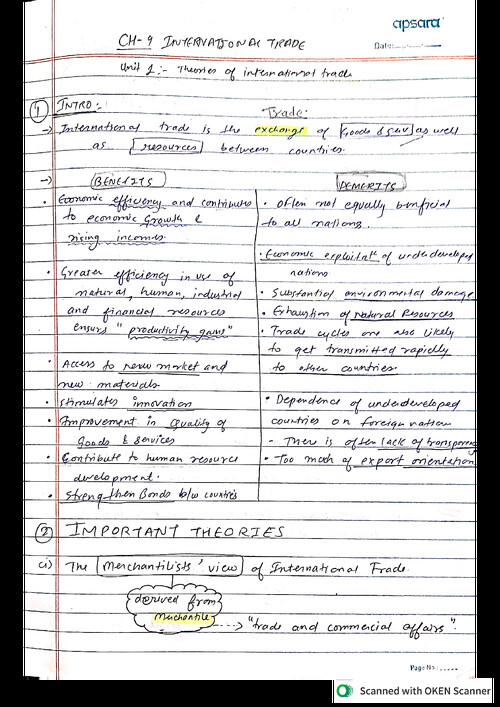 apsara
Date:
CH-9 INTERNATIONAL TRADE
Unit 1:- Theories of international trade
① INTRO:-
Trade:
→ International trade is the exchange of Goods & Serv as well
as resources between countries.
→ BENEFITS
• Economic efficiency and contributes
to economic Growth &
rising incomes.
• Greater efficiency in use of
natural, human, industrial
and financial resources
ensures "productivity gains"
• Access to new market and
new materials
• Stimulates innovation
• Improvement in quality of
Goods & Services
• Contribute to human resource
development.
• Strengthen Bonds b/w countries
DEMERITS
• often not equally beneficial
to all nations.
• Economic exploitatn of underdeveloped
nations
• Substantial environmental damage
• Exhaustion of Natural Resources
• Trade cycles are also likely
to get transmitted rapidly
to other countries.
• Dependence of underdeveloped
countries on foreign nation
- There is often lack of transparency
• Too much of export orientation
② IMPORTANT THEORIES
(i) The Merchantilists' view of International Trade.
derived from
Merchantile
→ "trade and commercial affairs".
Page No.:
Scanned with OKEN Scanner